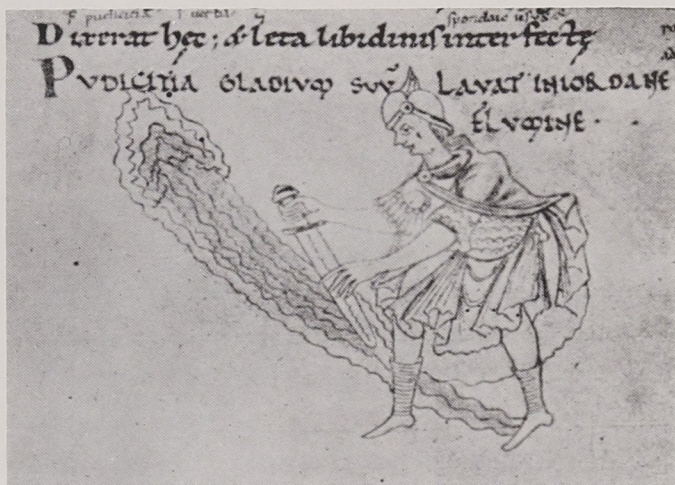 Dixerat hęc; & lęta libidinis interfectę
PUDICITIA GLADIUM SUŪ LAVAT IN IORDANE
FLUMINE ·